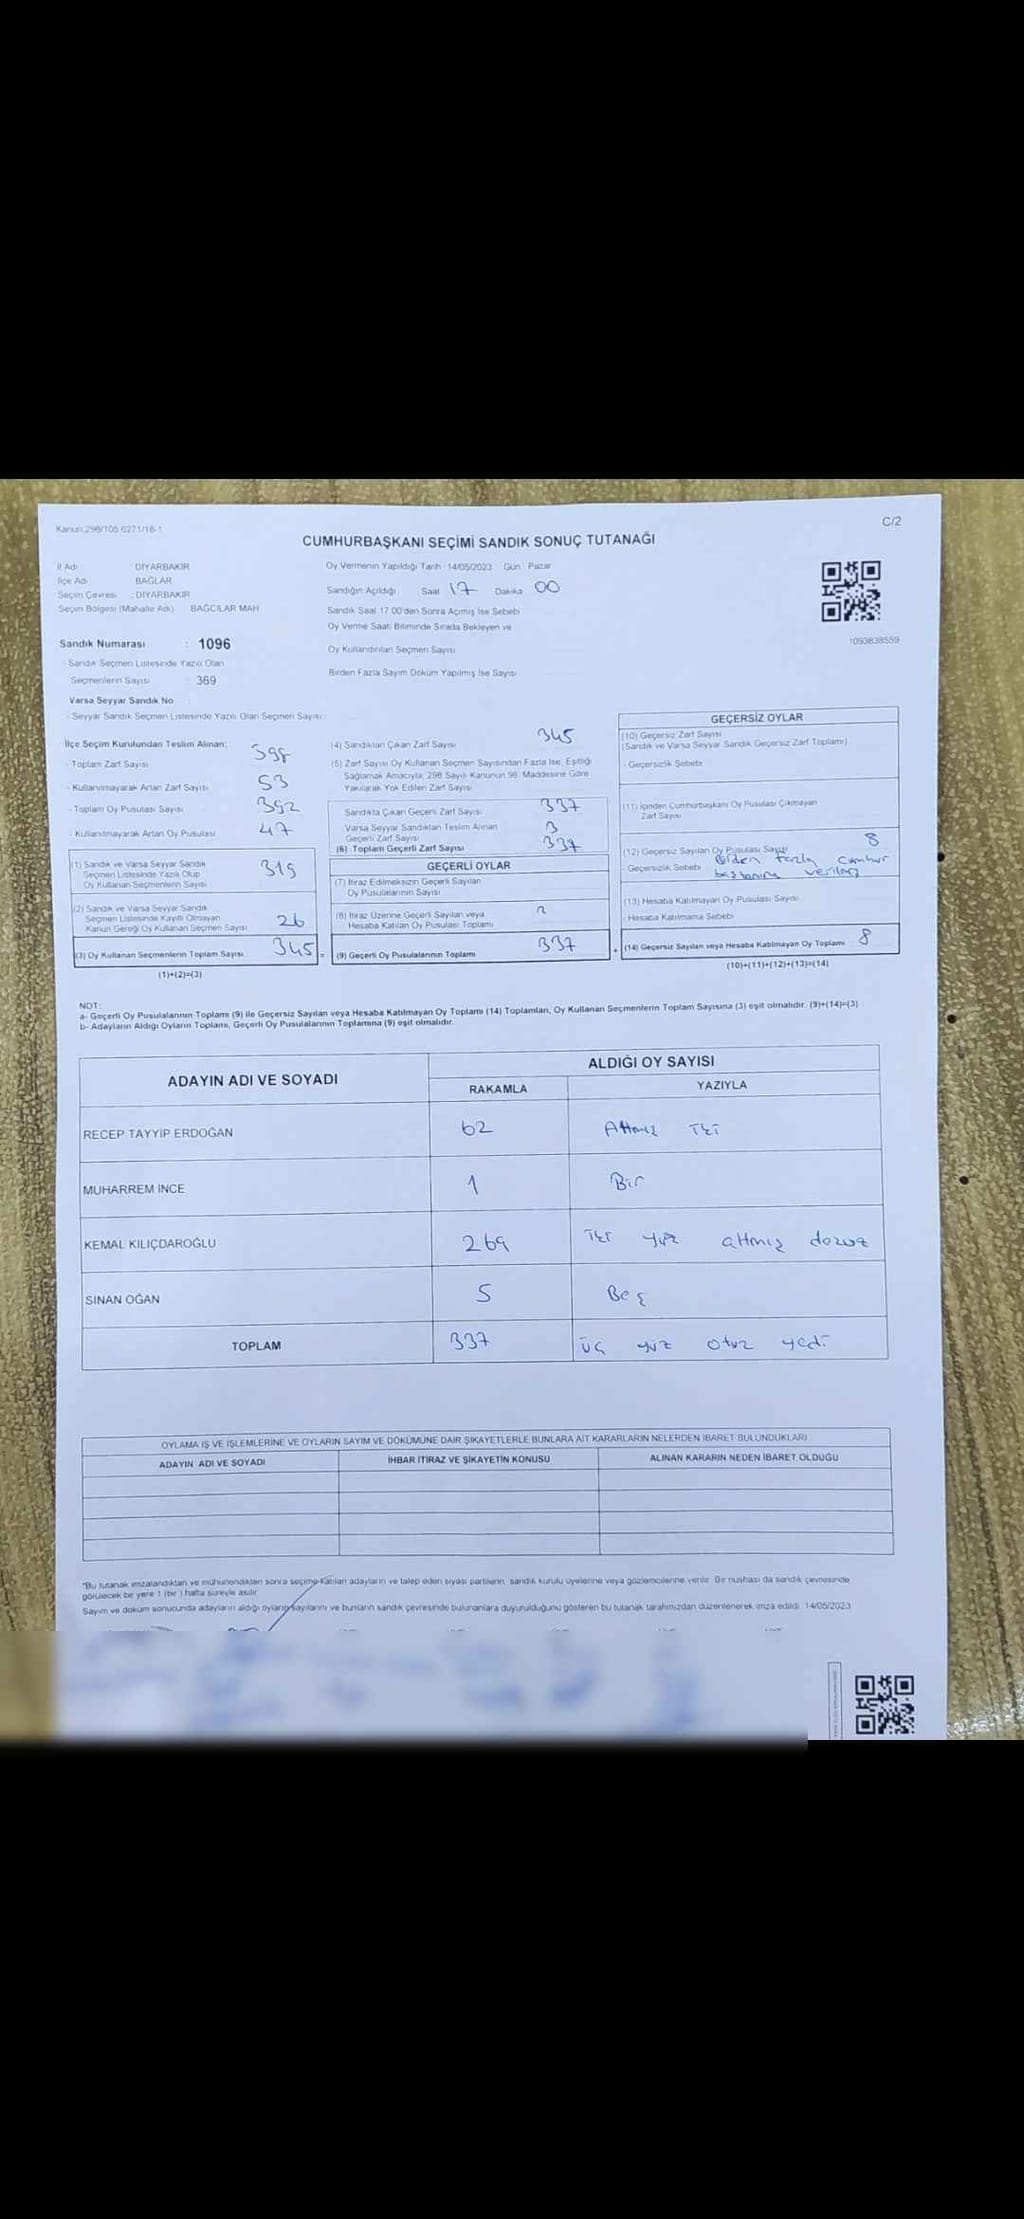 Kanun:298/105 6271/16-1
C/2
CUMHURBAŞKANI SEÇİMİ SANDIK SONUÇ TUTANAĞI
İl Adı : DİYARBAKIR
İlçe Adı : BAĞLAR
Seçim Çevresi : DİYARBAKIR
Seçim Bölgesi (Mahalle Adı) BAĞCILAR MAH
Sandık Numarası : 1096
- Sandık Seçmen Listesinde Yazılı Olan
Seçmenlerin Sayısı 369
Varsa Seyyar Sandık No
- Seyyar Sandık Seçmen Listesinde Yazılı Olan Seçmen Sayısı
Oy Vermenin Yapıldığı Tarih 14/05/2023 Gün Pazar
Sandığın Açıldığı Saat 17 Dakika 00
Sandık Saat 17.00'den Sonra Açılmış İse Sebebi
Oy Verme Saati Bitiminde Sırada Bekleyen ve
Oy Kullandırılan Seçmen Sayısı
Birden Fazla Sayım Döküm Yapılmış İse Sayısı
1093838559
İlçe Seçim Kurulundan Teslim Alınan:
- Toplam Zarf Sayısı 398
- Kullanılmayarak Artan Zarf Sayısı 53
- Toplam Oy Pusulası Sayısı 392
- Kullanılmayarak Artan Oy Pusulası 47
(1) Sandık ve Varsa Seyyar Sandık
Seçmen Listesinde Yazılı Olup
Oy Kullanan Seçmenlerin Sayısı 319
(2) Sandık ve Varsa Seyyar Sandık
Seçmen Listesinde Kayıtlı Olmayan
Kanun Gereği Oy Kullanan Seçmen Sayısı 26
(3) Oy Kullanan Seçmenlerin Toplam Sayısı 345 =
(1)+(2)=(3)
(4) Sandıktan Çıkan Zarf Sayısı 345
(5) Zarf Sayısı Oy Kullanan Seçmen Sayısından Fazla İse, Eşitliği
Sağlamak Amacıyla, 298 Sayılı Kanunun 98. Maddesine Göre
Yakılarak Yok Edilen Zarf Sayısı
Sandıkta Çıkan Geçerli Zarf Sayısı 337
Varsa Seyyar Sandıktan Teslim Alınan
Geçerli Zarf Sayısı
(6) Toplam Geçerli Zarf Sayısı 337
GEÇERLİ OYLAR
(7) İtiraz Edilmeksizin Geçerli Sayılan
Oy Pusulalarının Sayısı
(8) İtiraz Üzerine Geçerli Sayılan veya
Hesaba Katılan Oy Pusulası Toplamı
(9) Geçerli Oy Pusulalarının Toplamı 337
GEÇERSİZ OYLAR
(10) Geçersiz Zarf Sayısı
(Sandık ve Varsa Seyyar Sandık Geçersiz Zarf Toplamı)
- Geçersizlik Sebebi
(11) İçinden Cumhurbaşkanı Oy Pusulası Çıkmayan
Zarf Sayısı
(12) Geçersiz Sayılan Oy Pusulası Sayısı 8
- Geçersizlik Sebebi Birden fazla cumhur
başkanına
(13) Hesaba Katılmayan Oy Pusulası Sayısı
- Hesaba Katılmama Sebebi
+ (14) Geçersiz Sayılan veya Hesaba Katılmayan Oy Toplamı 8
(10)+(11)+(12)+(13)=(14)
NOT:
a- Geçerli Oy Pusulalarının Toplamı (9) ile Geçersiz Sayılan veya Hesaba Katılmayan Oy Toplamı (14) Toplamları, Oy Kullanan Seçmenlerin Toplam Sayısına (3) eşit olmalıdır. (9)+(14)=(3)
b- Adayların Aldığı Oyların Toplamı, Geçerli Oy Pusulalarının Toplamına (9) eşit olmalıdır.
ADAYIN ADI VE SOYADI
ALDIĞI OY SAYISI
RAKAMLA YAZIYLA
RECEP TAYYİP ERDOĞAN 62 Altmış İki
MUHARREM İNCE 1 Bir
KEMAL KILIÇDAROĞLU 269 İki yüz altmış dokuz
SİNAN OĞAN 5 Beş
TOPLAM 337 üç yüz otuz yedi
OYLAMA İŞ VE İŞLEMLERİNE VE OYLARIN SAYIM VE DÖKÜMÜNE DAİR ŞİKAYETLERLE BUNLARA AİT KARARLARIN NELERDEN İBARET BULUNDUKLARI
ADAYIN ADI VE SOYADI İHBAR İTİRAZ VE ŞİKAYETİN KONUSU ALINAN KARARIN NEDEN İBARET OLDUĞU
*Bu tutanak imzalandıktan ve mühürlendikten sonra seçime katılan adayların ve talep eden siyasi partilerin, sandık kurulu üyelerine veya gözlemcilerine verilir. Bir nüshası da sandık çevresinde
görülecek bir yere 1 (bir ) hafta süreyle asılır.
Sayım ve döküm sonucunda adayların aldığı oyların sayılarını ve bunların sandık çevresinde bulunanlara duyurulduğunu gösteren bu tutanak tarafımızdan düzenlenerek imza edildi. 14/05/2023